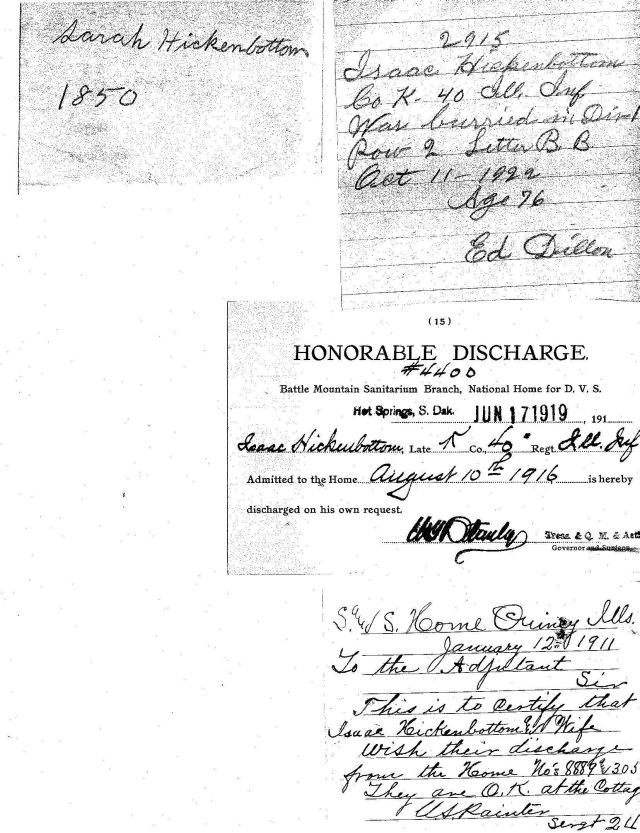 Sarah Hickenbottom
1850
2915
Isaac Hickenbottom
Co K- 40 Ill. Inf
Was burried in Div 1
Row 2 Letter B B
Oct 11- 1922
Age 76
Ed Dillon
(15)
HONORABLE DISCHARGE.
#4400
Battle Mountain Sanitarium Branch, National Home for D. V. S.
Hot Springs, S. Dak. JUN 17 1919, 191
Isaac Hickenbottom, Late K Co., 40" Regt. Ill. Inf
Admitted to the Home August 10th 1916 is hereby
discharged on his own request.
Treas. & Q. M. & Act
Governor and Surgeon
S and S. Home Quincy Ills.
January 12th 1911
To the Adjutant
Sir
This is to certify that
Isaac Hickenbottom & Wife
wish their discharge
from the Home No's 8889 &
They are O.K. at the Cottag
Sergt